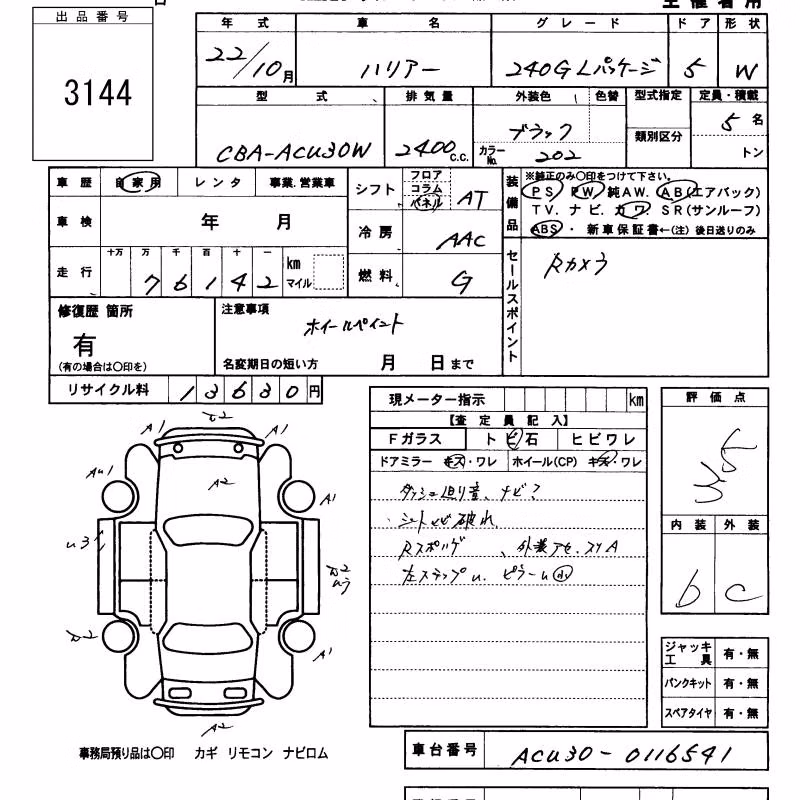 出品番号
3144
年式 車名 グレード ドア 形状
22/10月 ハリアー 240G Lパッケージ 5 W
型式 排気量 外装色 色替 型式指定 定員・積載
類別区分
CBA-ACU30W 2400 c.c. ブラック カラーNo. 202 5名
トン
車歴 自家用 レンタ 事業.営業車 シフト フロア コラム パネル AT
車検 年 月 冷房 AAC
走行 十万 万 千 百 十 一
76142 km マイル 燃料 G
装備品 ※純正のみ〇印をつけて下さい。
PS PW 純AW. AB(エアバック)
TV. ナビ. カワ. SR(サンルーフ)
ABS・ 新車保証書←(注) 後日送りのみ
セールスポイント Rカメラ
修復歴 箇所
有
(有の場合は〇印を)
注意事項
ホイールペイント
名変期日の短い方 月 日まで
リサイクル料 13630円
現メーター指示 km
【査定員記入】
Fガラス トビ石 ヒビワレ
ドアミラー キズ・ワレ ホイール(CP) キズ・ワレ
ダッシュ廻り 、ナビ?
シート 破れ
Rスポイラ 、外装アセ、スリA
左ステップU. ピラーU 小
評価点
3.5
内装 外装
b C
ジャッキ工具 有・無
パンクキット 有・無
スペアタイヤ 有・無
A1 A1
A2
AU1 A1
U3
A1
A2
事務局預り品は〇印 カギ リモコン ナビロム
車台番号 ACU30-0116541